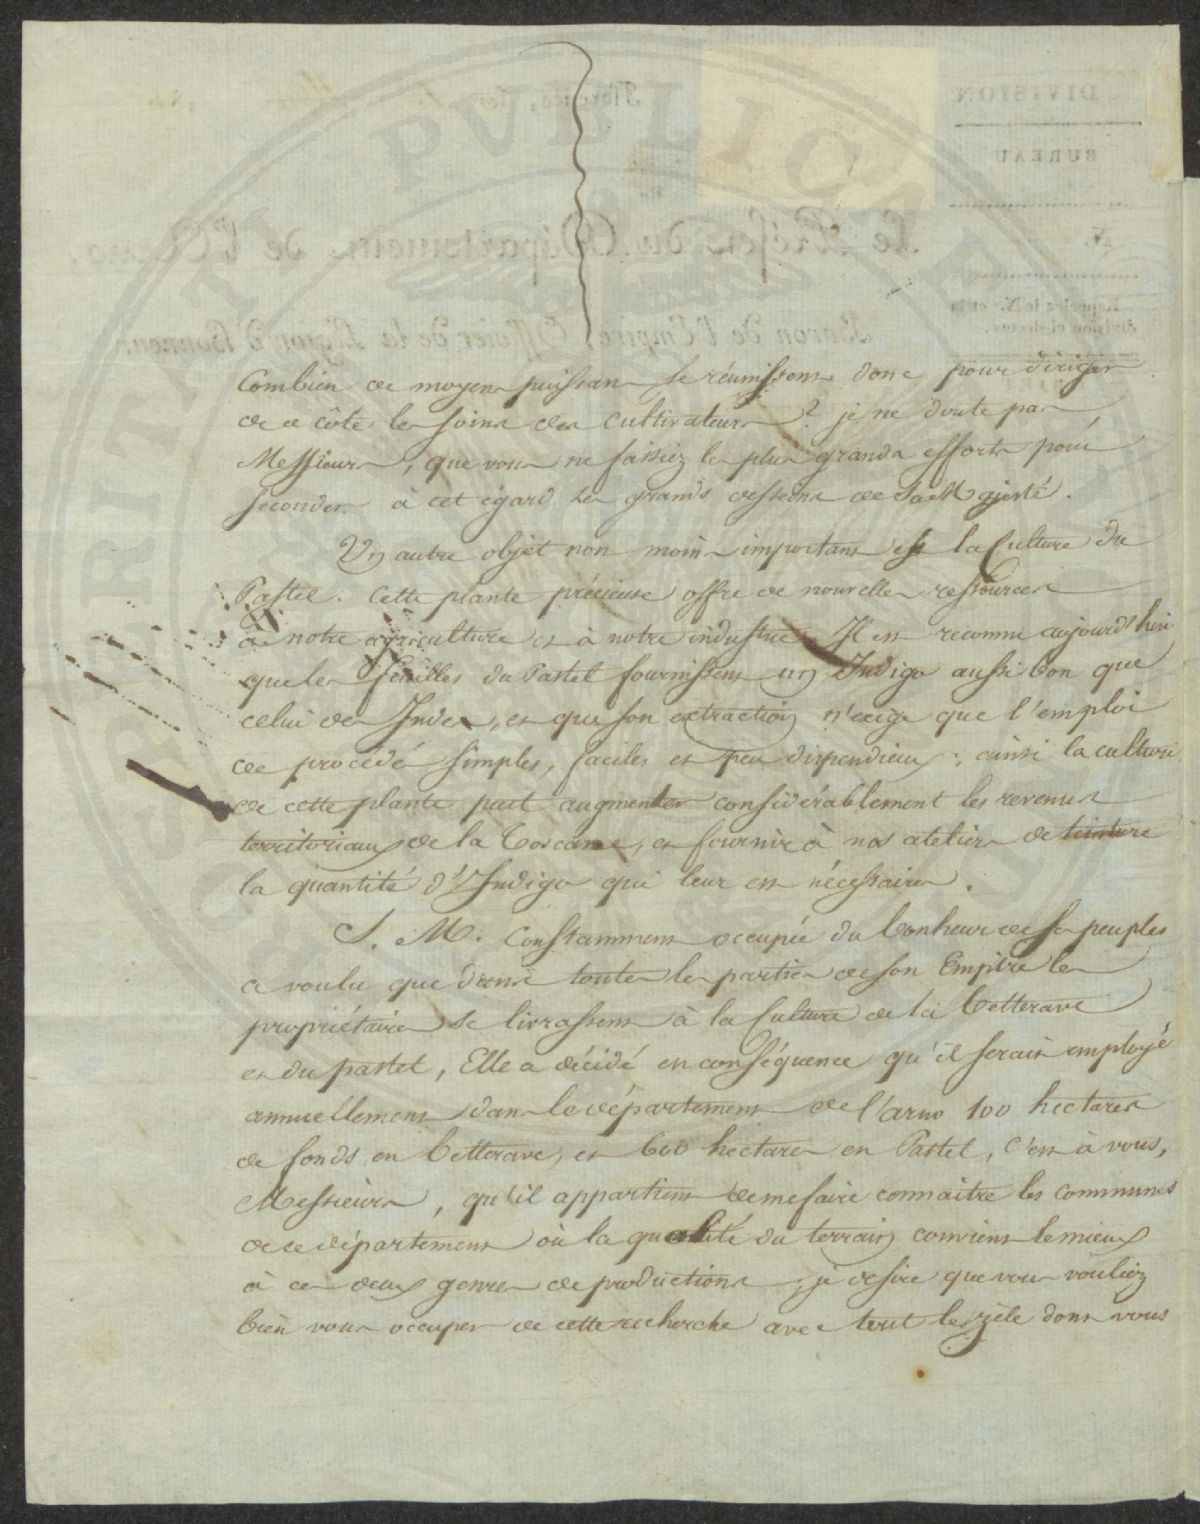 Combien de moyens puissans se réunissent donc pour diriger
de ce côté les soins des Cultivateurs? je ne doute pas
Messieurs, que vous ne fassiez les plus grands efforts pour
seconder à cet égard les grands desseins de Sa Majesté.
Un autre objet non moins important est la Culture du
Pastel. Cette plante précieuse offre de nouvelles ressources
à notre agriculture et à notre industrie. Il est reconnu aujourd'hui
que les feuilles du Pastel fournissent un Indigo aussi bon que
celui des Indes, et que son extraction n'exige que l'emploi
de procédé simples, faciles et peu dispendieux; ainsi la culture
de cette plante peut augmenter considérablement les revenus
territoriaux de la Toscane, et fournir à nos ateliers de teinture
la quantité d'Indigo qui leur est nécessaire.
S. M. Constamment occupée du bonheur de ses peuples
a voulu que dans toutes les parties de son Empire les
propriétaires se livrassent à la Culture de la betterave
et du pastel, Elle a décidé en conséquence qu'il serait employé
annuellement dans le département de l'arno 100 hectares
de fonds en betterave, et 600 hectares en Pastel, C'est à vous,
Messieurs, qu'il appartient de me faire connaitre les Communes
de ce département où la qualité du terrain convient le mieux
à ces deux genres de productions, je desire que vous vouliez
bien vous occuper de cette recherche avec tout le zèle dont vous